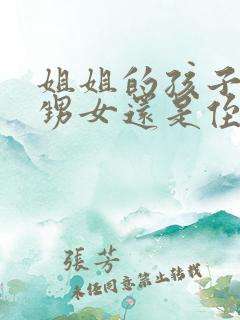 姐姐的孩子
甥女還是侄
張芳
未经同意禁止转载